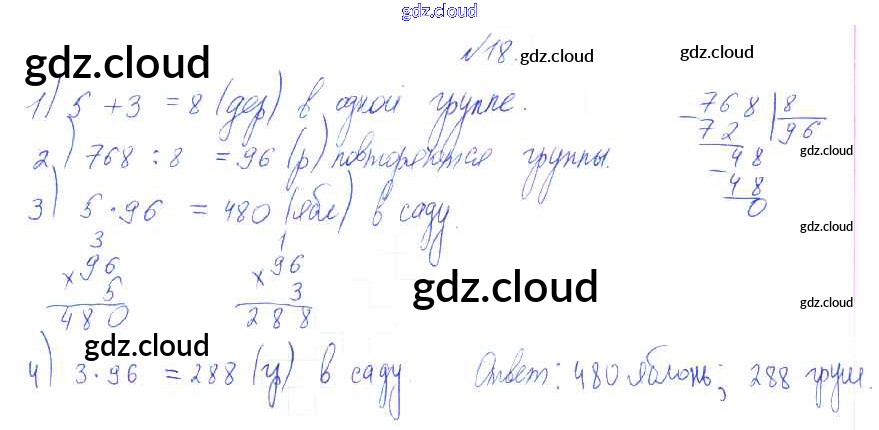 gdz.cloud
№18. gdz.cloud gdz.cloud
gdz.cloud
1) 5 + 3 = 8 (дер) в одной группе.
768 | 8
− 72 | 96
48
− 48
0
gdz.cloud
2) 768 : 8 = 96 (р) повторяются группы.
3) 5 · 96 = 480 (ябл) в саду.
gdz.cloud
3
× 96
5
480
1
× 96
3
288
gdz.cloud
gdz.cloud
gdz.cloud
4) 3 · 96 = 288 (гр) в саду.
Ответ: 480 яблонь; 288 груш.